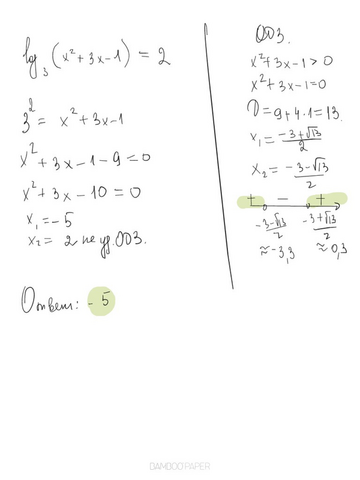 log₃(x² + 3x - 1) = 2
3² = x² + 3x - 1
x² + 3x - 1 - 9 = 0
x² + 3x - 10 = 0
x₁ = -5
x₂ = 2 не уд. ОДЗ.
Ответ: -5
ОДЗ.
x² + 3x - 1 > 0
x² + 3x - 1 = 0
D = 9 + 4·1 = 13.
x₁ = (-3 + √13)/2
x₂ = (-3 - √13)/2
+ - +
(-3 - √13)/2 (-3 + √13)/2
≈ -3,3 ≈ 0,3
BAMBOO PAPER